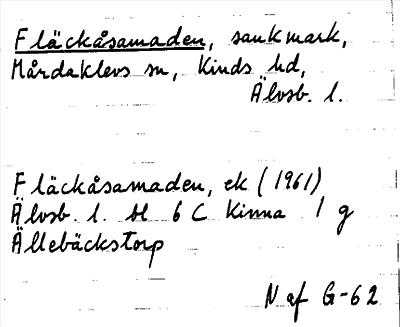 Fläckåsamaden, sankmark,
Mårdaklevs sn, Kinds hd,
Älvsb. l.
Fläckåsamaden, ek (1961)
Älvsb. l. bl 6 C Kinna 1 g
Ällebäckstorp
N af G-62